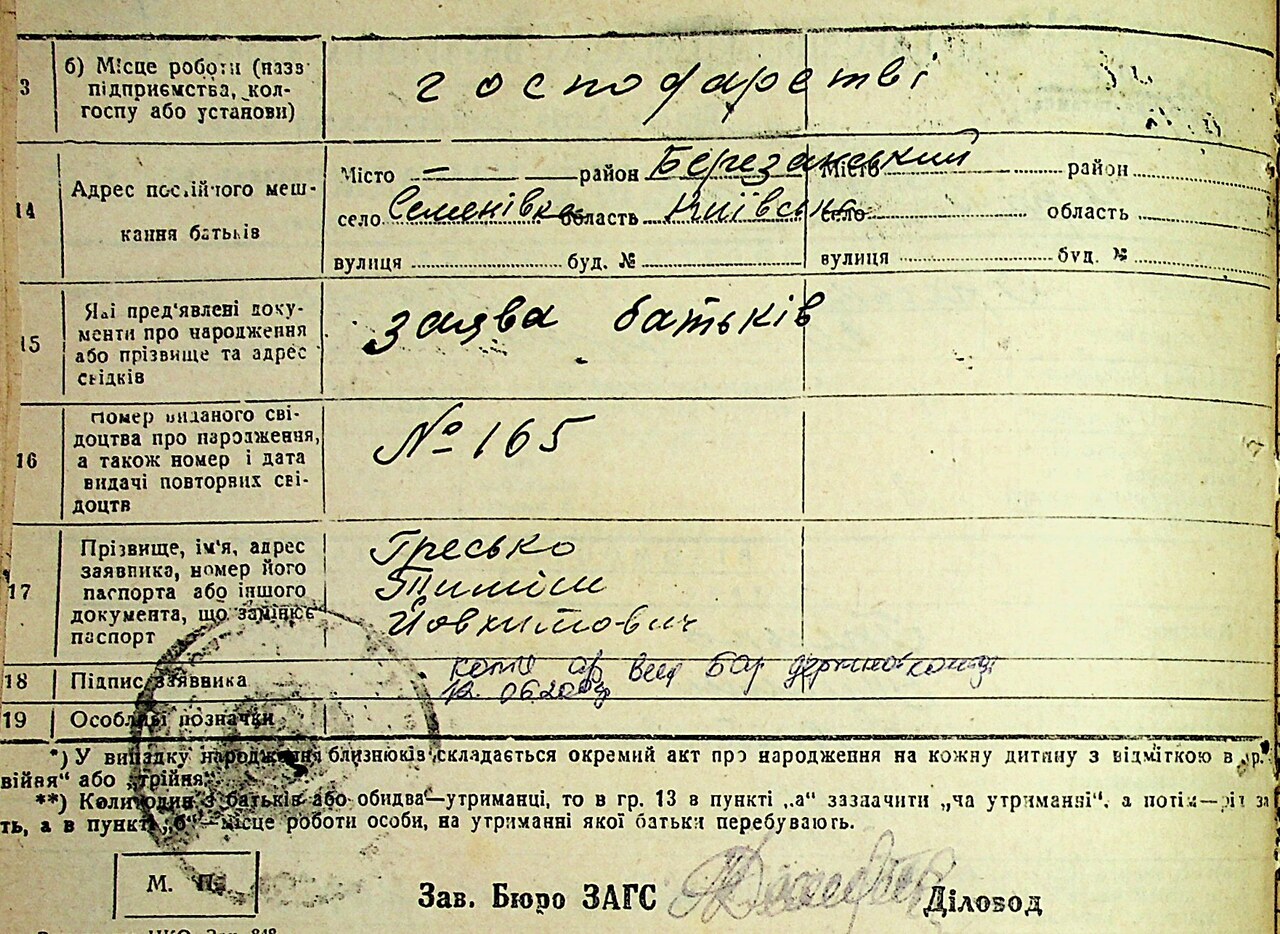 3 б) Місце роботи (назв
підприємства, кол-
госпу або установи)
господарстві
14 Адрес постійного меш-
кання батьків
Місто — район Березанський Місто район
село Семенівка область Київська село область
вулиця буд. № вулиця буд. №
15 Які пред'явлені доку-
менти про народження
або прізвище та адрес
свідків
заява батьків
16 Номер виданого сві-
доцтва про народження,
а також номер і дата
видачі повторних сві-
доцтв
№ 165
17 Прізвище, ім'я, адрес
заявника, номер його
паспорта або іншого
документа, що замінює
паспорт
Гресько
18 Підпис заявника
19 Особливі позначки
*) У випадку народження близнюків складається окремий акт про народження на кожну дитину з відміткою в гр.
війня“ або „трійня“
**) Коли один з батьків або обидва—утриманці, то в гр. 13 в пункті „а“ зазначити „на утриманні“, а потім—рід за
ть, а в пункті „б“—місце роботи особи, на утриманні якої батьки перебувають.
М. П.
Зав. Бюро ЗАГС Діловод